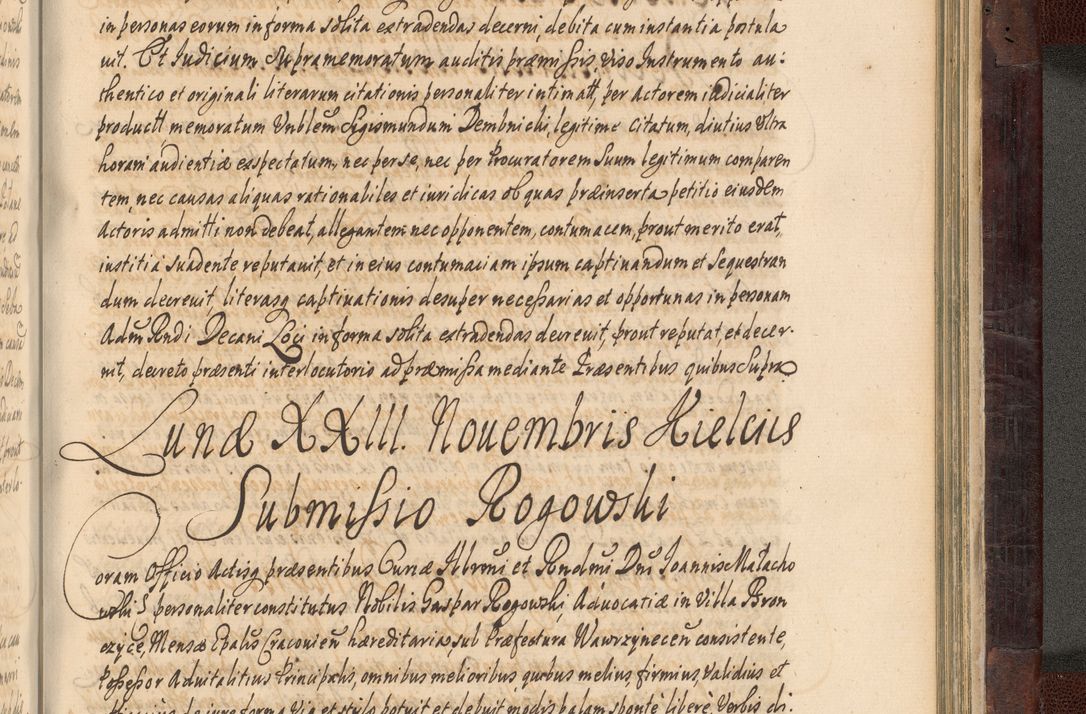 in personas eorum in forma solita extradendas decerni, debita cum instantia postula
uit. Et Iudicium supramemoratum auditis præmissis viso Instrumento au:
thentico et originali literarum citationis personaliter intimatt, per Actorem iudicialiter
productt memoratum Vnblem Sigismundum Dembnichi, legitime citatum, diutius vltra
horam audientiæ exspectatum, nec per se, nec per Procuratorem Suum legitimum comparen
tem, nec causas aliquas rationabiles et iuridicas ob quas præinserta petitio eiusdem
Actoris admitti non debeat, allegantem nec opponentem, contumacem, prout merito erat,
iustitia suadente reputauit, et in eius contumaciam ipsum captiuandum et sequestran
dum decreuit, literasq captiuationis desuper necessarias et opportunas in personam
Adm Rndi Decani Loci in forma solita extradendas decreuit, prout reputat, et decer-
nit, decreto præsenti interlocutorio ad præmissa mediante Præsentibus quibus supra
Lunæ XXIII. Nouembris Kielciis
Submissio Rogowski
Coram Officio Actisq præsentibus Curiæ Illrmi et Rndmi Dni Ioannis Małacho
wski personaliter constitutus Nobilis Gaspar Rogowski, Aduocatiæ in Villa Bron
czyce, Mensæ Epalis Cracouien hæreditariæ sub Præfectura Wawrzynecen consistente,
Possessor Aduitalitius Principalis, omnibus melioribus, quibus melius, firmius, validius et
de iure forma via et stylo potuit et debuit modis palam sponte libere verbis di.